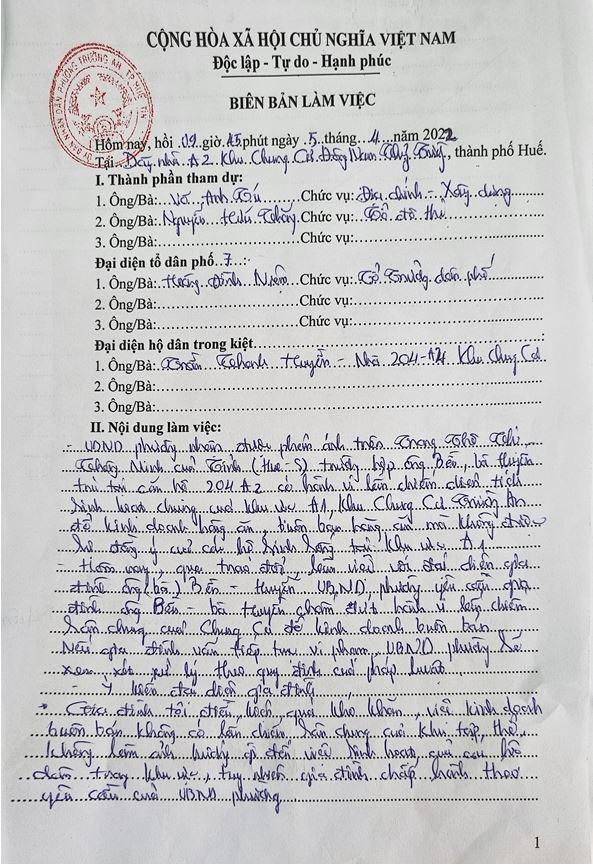 CỘNG HÒA XÃ HỘI CHỦ NGHĨA VIỆT NAM
Độc lập - Tự do - Hạnh phúc
BIÊN BẢN LÀM VIỆC
Hôm nay, hồi 09 giờ 15 phút ngày 5 tháng 4 năm 2022
Tại Dãy nhà A2 Khu Chung Cư Đống Đa, thành phố Huế.
I. Thành phần tham dự:
1. Ông/Bà: Võ Anh Tú Chức vụ: Địa chính - Xây dựng
2. Ông/Bà: Nguyễn Hữu Thắng Chức vụ: Tổ đô thị
3. Ông/Bà: Chức vụ:
Đại diện tổ dân phố 7:
1. Ông/Bà: Hoàng Đình Niệm Chức vụ: Tổ Trưởng dân phố
2. Ông/Bà: Chức vụ:
3. Ông/Bà: Chức vụ:
Đại diện hộ dân trong kiệt
1. Ông/Bà: Trần Thanh Huyền - Nhà 204-A2 Khu Chung Cư
2. Ông/Bà:
3. Ông/Bà:
II. Nội dung làm việc:
- UBND phường nhận được phản ánh trên Trang Đô Thị
Thông Minh của Tỉnh (Hue-S) trường hợp ông Bến, bà Huyền
trú tại căn hộ 204 A2 có hành vi lấn chiếm diện tích
sinh hoạt chung của khu vực A1, Khu Chung Cư Trường An
để kinh doanh hàng ăn, buôn bán hàng mà không được
sự đồng ý của các hộ sinh sống tại khu vực A1.
- Hôm nay, qua trao đổi, làm việc với đại diện gia
đình ông (bà) Bến - Huyền UBND phường yêu cầu gia
đình ông Bến - bà Huyền chấm dứt hành vi lấn chiếm
sân chung của Chung Cư để kinh doanh buôn bán
Nếu gia đình vẫn tiếp tục vi phạm, UBND phường sẽ
xem xét xử lý theo quy định của pháp luật.
- Ý kiến đại diện gia đình
* Gia đình tôi khó khăn, việc kinh doanh
buôn bán không có lấn chiếm sân chung của khu tập thể,
không làm ảnh hưởng gì đến việc sinh hoạt của các hộ
dân trong khu vực, tuy nhiên gia đình chấp hành theo
yêu cầu của UBND phường
1